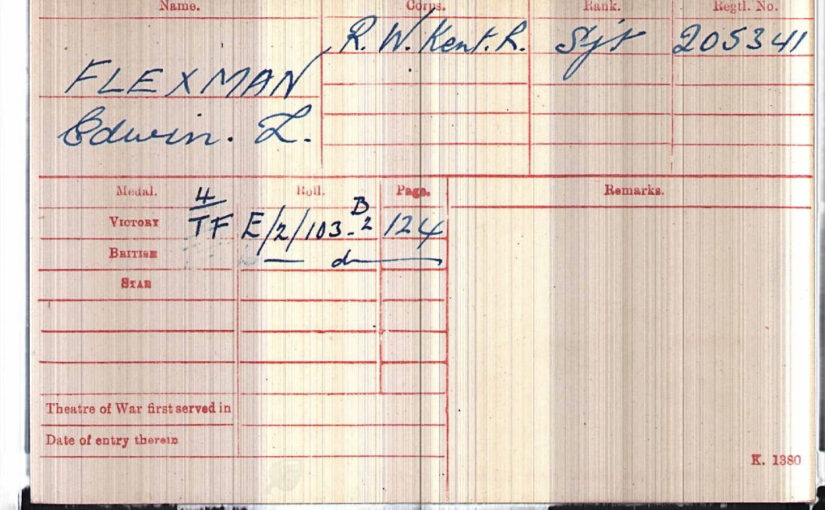 Name. Corps. Rank. Regtl. No.
R. W. Kent. R. Sjt 205341
FLEXMAN
Edwin. L.
Medal. Roll. Page. Remarks.
4
VICTORY TF E/2/103 B2 124
BRITISH — do —
STAR
Theatre of War first served in
Date of entry therein
K. 1380